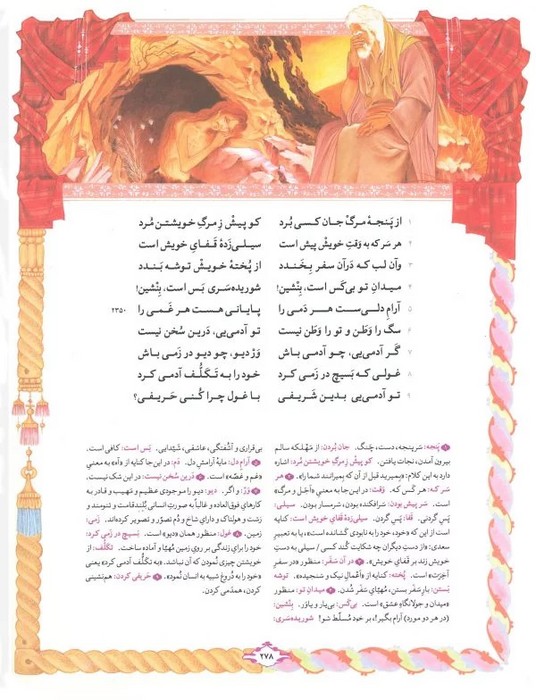 ۱ از پَنجهٔ مرگْ جان کسی بُرد کو پیشْ زِ مرگِ خویشتن مُرد
۲ هر سَر که به وَقتِ خویشْ پیش است سیلی‌زَدهٔ قَفایِ خویش است
۳ وآن لب که دَرآن سفر بِخَندد از پُختهٔ خویشْ توشه بَندد
۴ میدانِ تو بی‌کَس است، بِنْشین! شوریده‌سَری بَس است، بِنْشین!
۵ آرامِ دلی‌ست هر دَمی را پایانی هست هر غَمی را ۲۳۵۰
۶ سگ را وَطَن و تو را وَطَن نیست تو آدمی‌یی، دَرین سُخن نیست
۷ گَر آدمی‌یی، چو آدمی باش وَرْ دیو، چو دیو در زَمی باش
۸ غولی که بَسیچ در زَمی کرد خود را به تَکَلُّف آدمی کرد
۹ تو آدمی‌یی بدین شَریفی با غول چرا کُنی حَریفی؟
۱ پَنجه: سَرپنجه، دست، چَنگ. جان بُردن: از مَهلکه سالم
بیرون آمدن، نجات یافتن. کو پیش زِ مرگِ خویشتن مُرد: اشاره
دارد به این کلام: «بِمیرید قبل از آن که بِمیرانند شما را». ۲ هر
سَر که: هر کَس که. وَقت: در این‌جا به معنیِ «اَجَل و مرگ»
است. سَر پیش بودن: سَرافکنده بودن، شرمسار بودن. سیلی:
پَس گردنی. قَفا: پَس گردن. سیلی‌زَدهٔ قَفایِ خویش است: کنایه
از این که «خود، خود را به نابودی کشانده است»، یا به تعبیرِ
سعدی: «از دستِ دیگران چه شکایت کُند کسی / سیلی به دستِ
خویش زند بر قَفایِ خویش». ۳ در آن سَفَر: منظور «در سفرِ
آخِرَت» است. پُخته: کنایه از «اَعمالِ نیک و سَنجیده». توشه
بَستن: بارِ سَفر بَستن، مُهیّایِ سَفَر شُدن. ۴ میدانِ تو: منظور
«میدان و جولانگاهِ عشق» است. بی‌کَس: بی‌یار و یاوَر. بِنْشین:
(در هر دو مورد) آرام بگیر!، بر خود مُسلَّط شو! شوریده‌سَری:
بی‌قراری و آشُفتگی، عاشقی، شَیْدایی. بَس است: کافی است.
۵ آرامِ دل: مایهٔ آرامشِ دل. دَم: در این جا کنایه از «آه» به معنیِ
«غم و غصّه» است. ۶ دَرین سُخن نیست: در این شک نیست.
۷ وَرْ: و اگر. دیو: دیو را موجودی عظیم و مَهیب و قادر به
کارهای فوق‌العاده و غالباً به صورتِ انسانی بُلندقامت و تنومند و
زشت و هولناک و دارای شاخ و دُم تصوّر و تصویر کرده‌اند. زَمی:
زمین. ۸ غول: منظور همان «دیو» است. بَسیچ در زَمی کرد:
خود را برای زندگی بر رویِ زمین مُهیّا و آماده ساخت. تَکَلُّف: از
خویشتن چیزی نُمودن که آن نباشد. «به تَکَلُّف آدمی کرد» یعنی
«خود را به دُروغ شبیه به انسان نُمود». ۹ حَریفی کردن: هم‌نشینی
کردن، همدَمی کردن.
۲۷۸